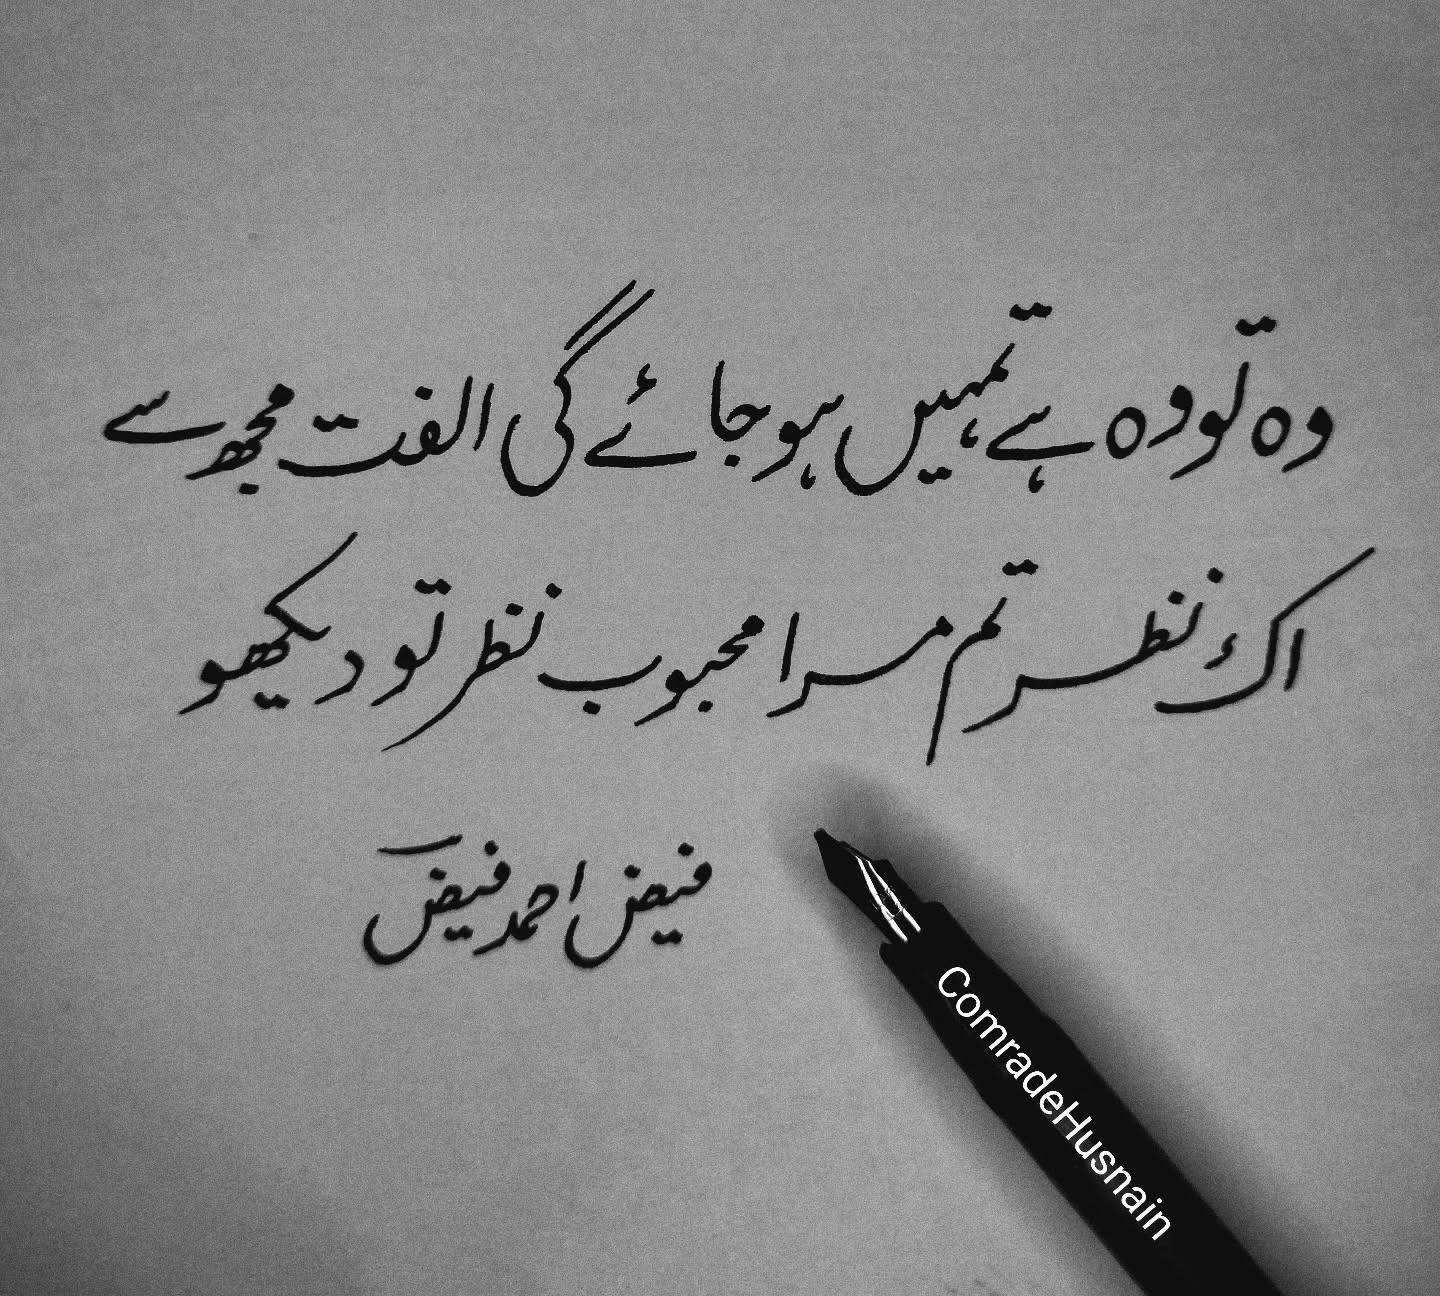 وہ تو وہ ہے تمہیں ہو جائے گی الفت مجھ سے
اک نظر تم مرا محبوب نظر تو دیکھو
فیض احمد فیضؔ
ComradeHusnain